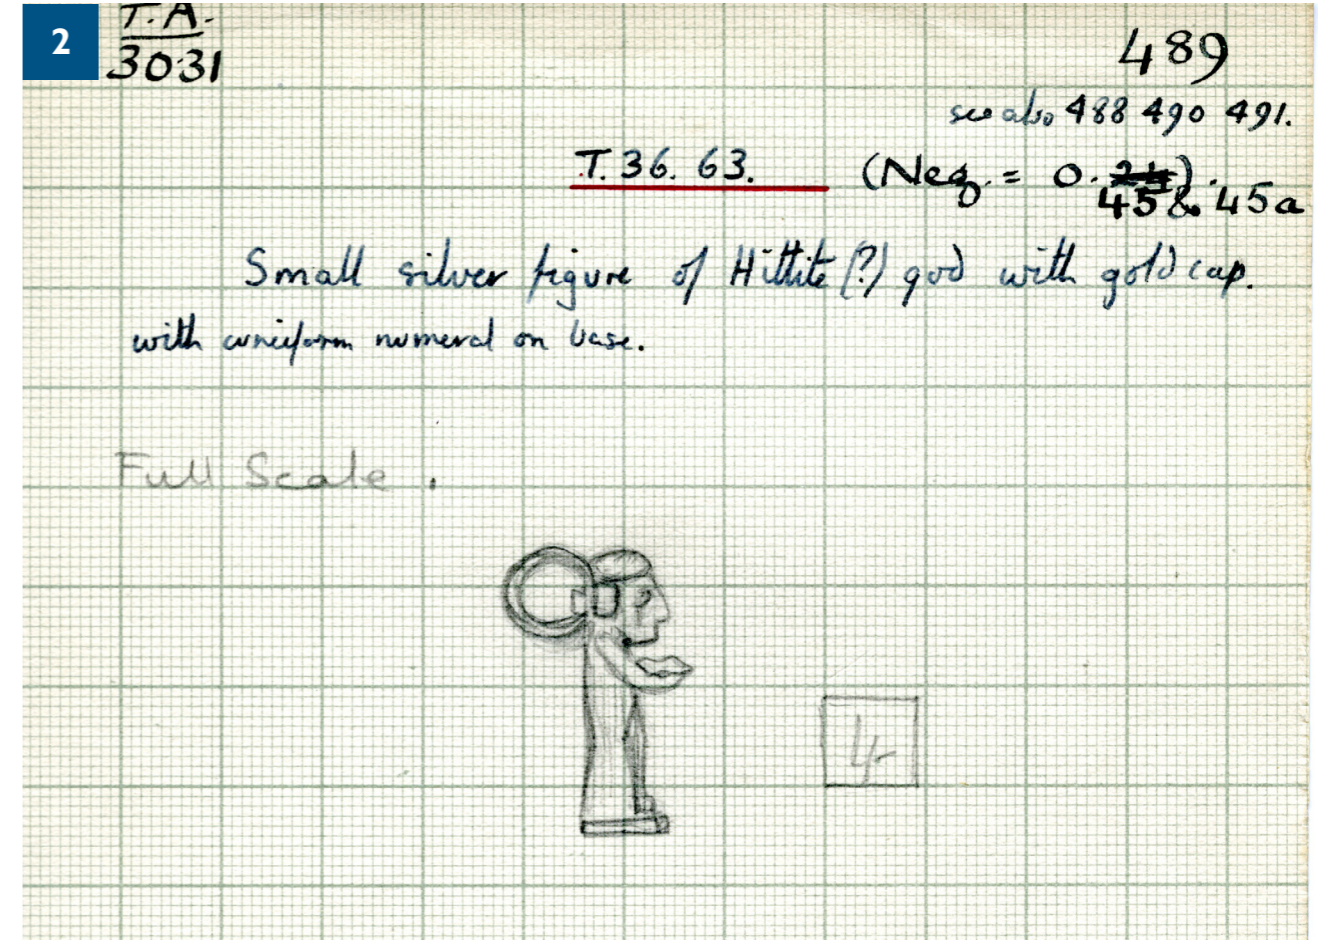 2
T.A.
3031
489
see also 488 490 491.
T. 36. 63. (Neg. = 0. 24).
45 & 45a
Small silver figure of Hittite (?) god with gold cap.
with cuneiform numeral on base.
Full Scale.
4